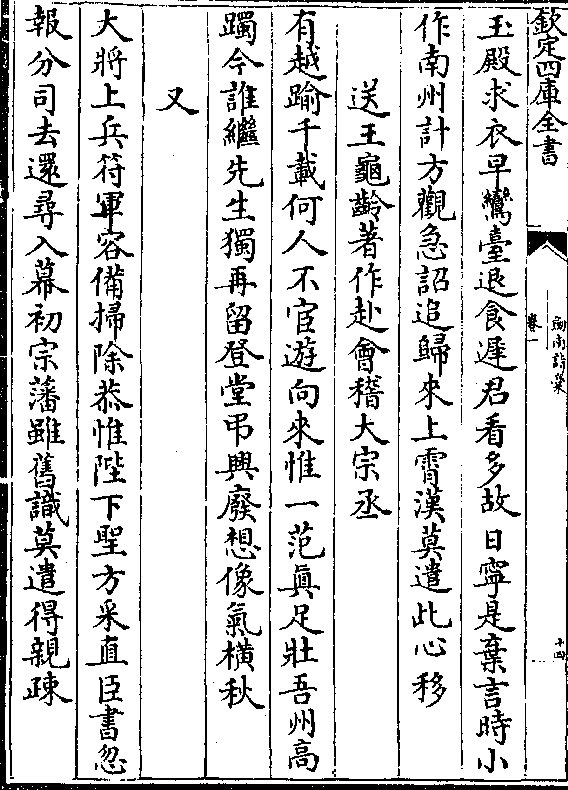 欽定四庫全書
劍南詩稾
卷一
十四
玉殿求衣早鸞臺退食遲君看多故日寧是棄言時小
作南州計方觀急詔追歸來上霄漢莫遣此心移
送王龜齡著作赴會稽大宗丞
有越踰千載何人不宦遊向來惟一范真足壯吾州高
躅今誰繼先生獨再留登堂弔興廢想像氣橫秋
又
大將上兵符軍容備掃除恭惟陛下聖方采直臣書忽
報分司去還尋入幕初宗藩雖舊識莫遣得親疎